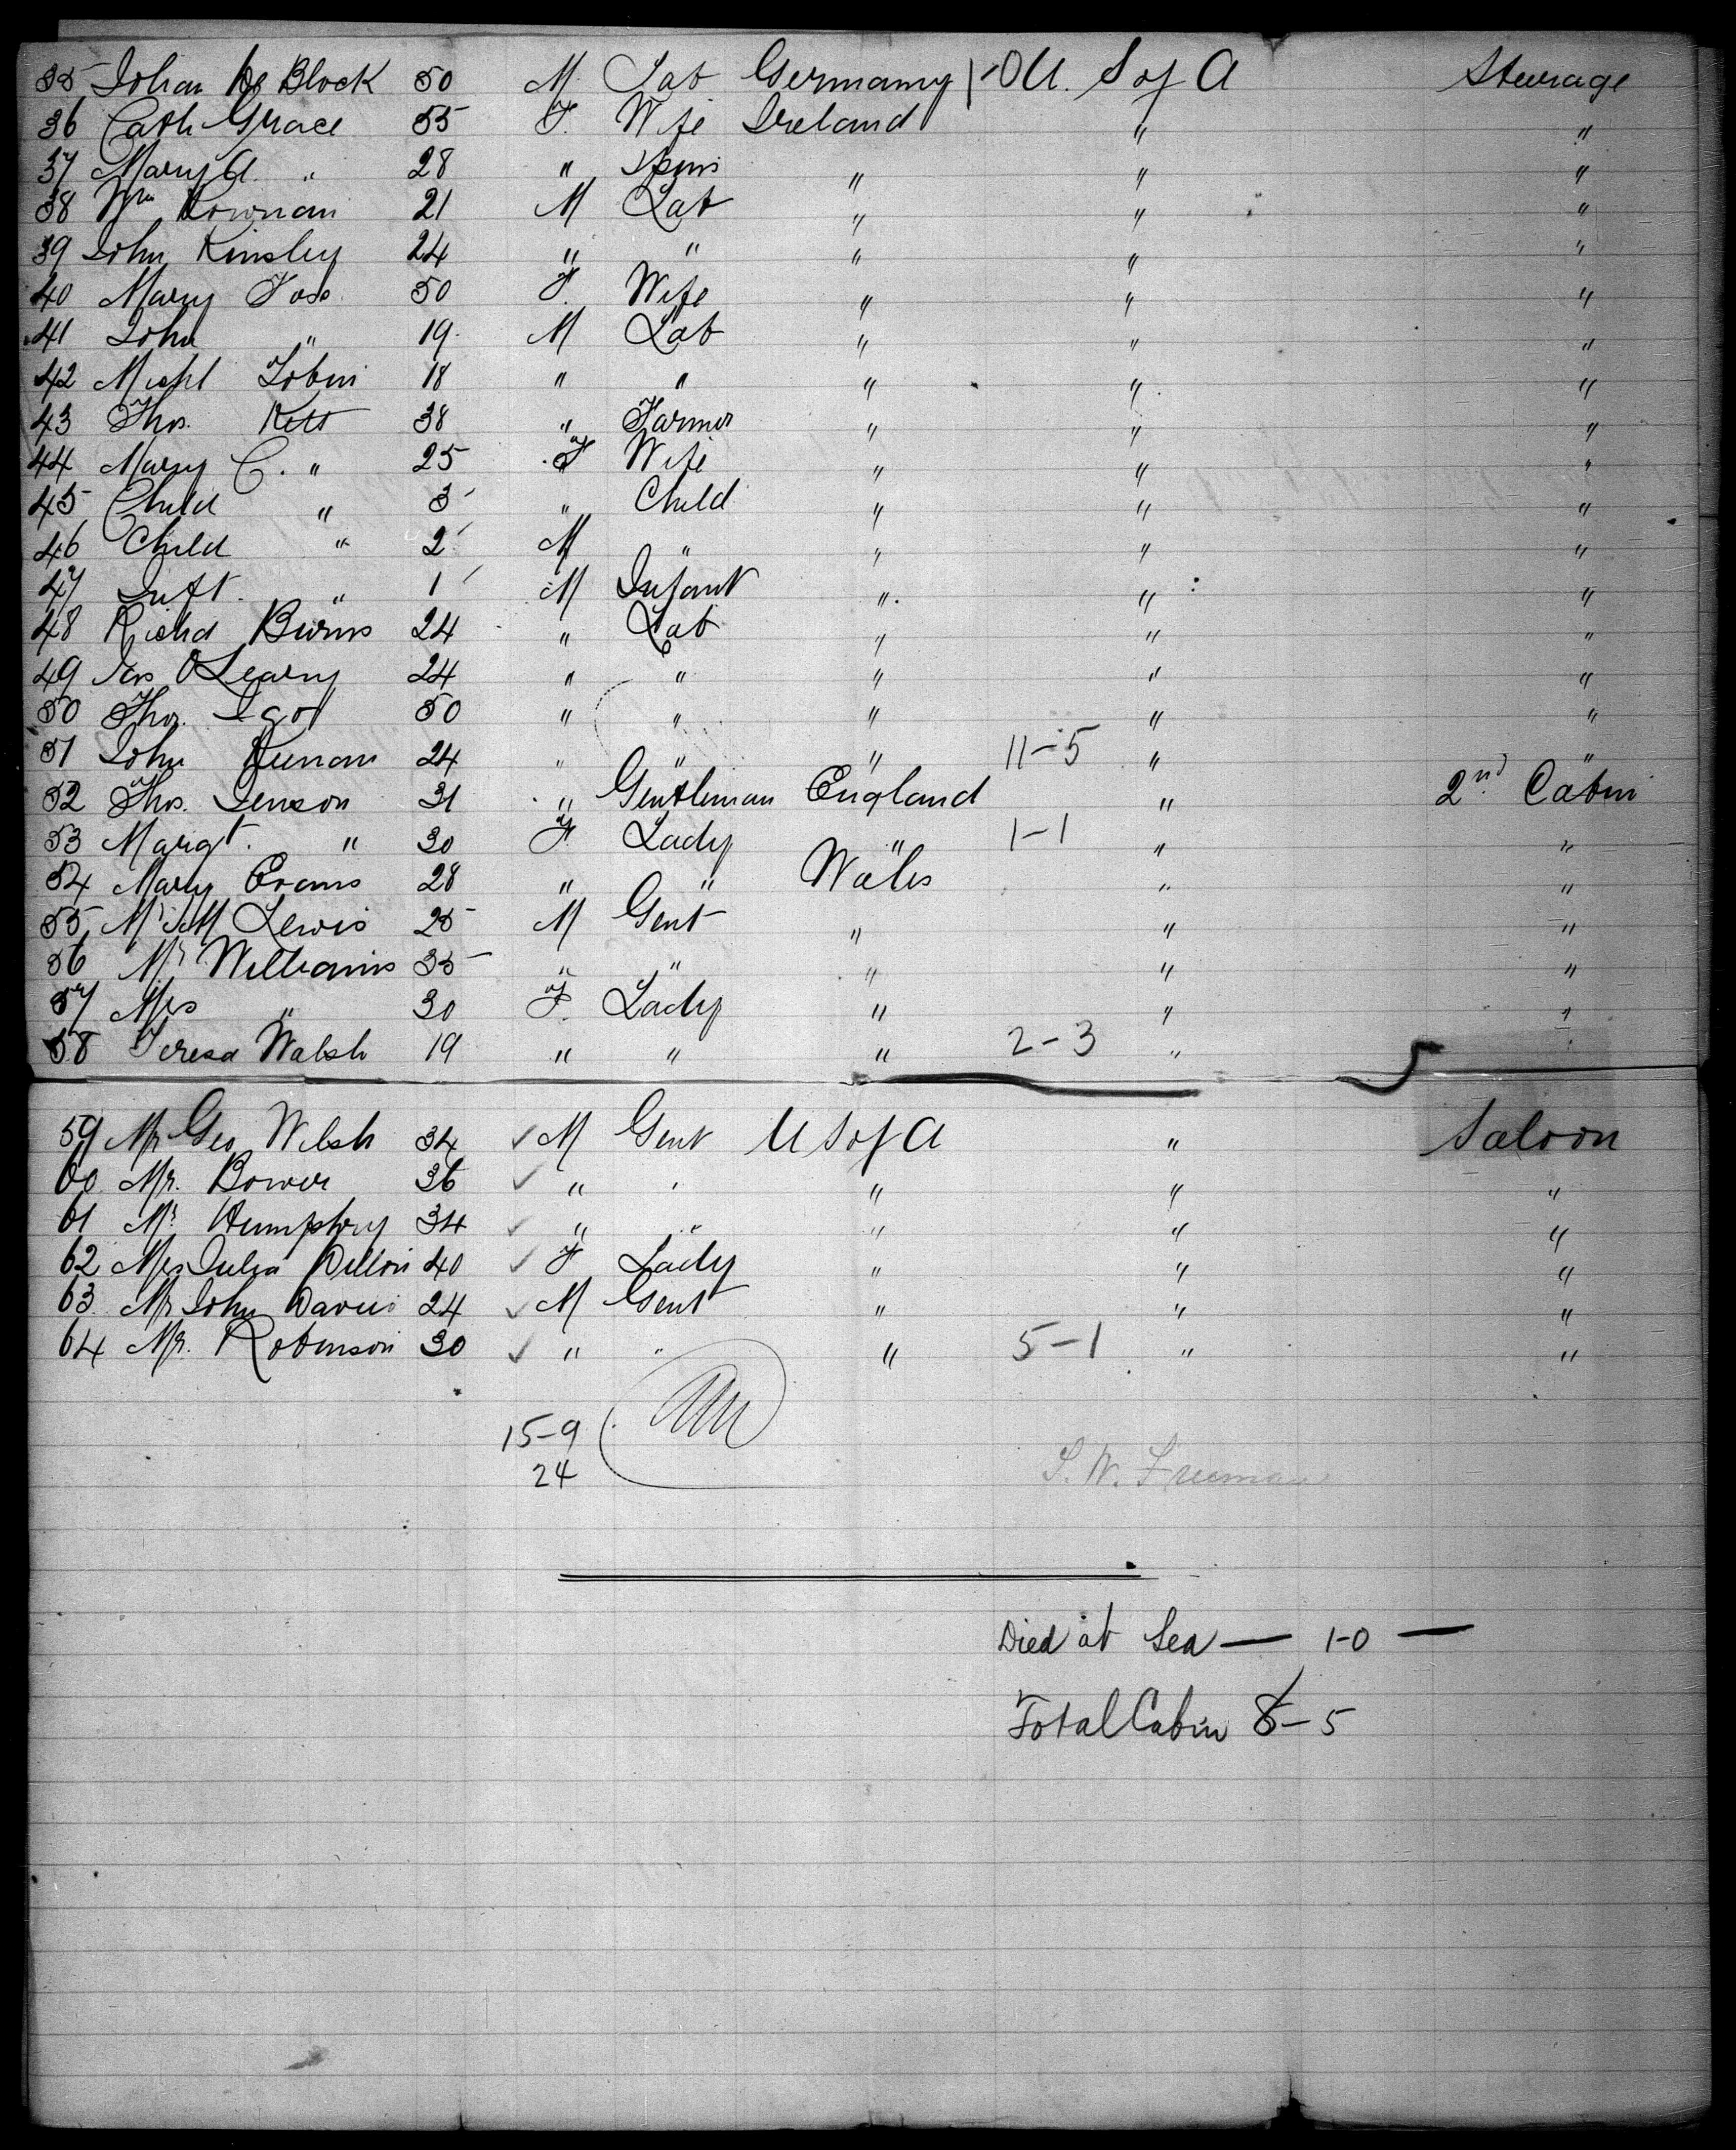 35 Johan De Block 50 M. Lab Germany 1-0 U. S of A Steerage
36 Cath Grace 55 F. Wife Ireland " "
37 Mary A. " 28 " Spins " " "
38 Wm 21 M Lab " " "
39 John Kinsley 24 " " " " "
40 Mary Foss 50 F. Wife " " "
41 John " 19 M Lab " " "
42 Michl Tobin 18 " " " " "
43 Thos. Kett 38 " Farmer " " "
44 Mary C. " 25 F Wife " " "
45 Child " 3 " Child " " "
46 Child " 2 M " " " "
47 Inft. " 1 M Infant " " "
48 Richd Burns 24 " Lab " " "
49 Jas O'Leary 24 " " " " "
50 Thos. 50 " " " " "
51 John Keenan 24 " " " 11-5 " "
52 Thos. Jenson 31 " Gentleman England " 2nd Cabin
53 Margt. " 30 F Lady " 1-1 " "
54 Mary Evans 28 " " Wales " "
55 Mr J M Lewis 25 M Gent " " "
56 Mr Williams 35 " " " " "
57 Mrs " 30 F. Lady " " "
58 Teresa Walsh 19 " " " 2-3 " "
59 Mr Geo Welsh 34 ✓ M Gent U S of A " Saloon
60 Mr. Bower 36 ✓ " " " " "
61 Mr Humphry 34 ✓ " " " " "
62 Mrs Julia Dillon 40 ✓ F Lady " " "
63 Mr John Davis 24 ✓ M Gent " " "
64 Mr. Robinson 30 ✓ " " " 5-1 " "
15-9
24
S. W. Freeman
Died at Sea — 1-0 —
Total Cabin 8-5